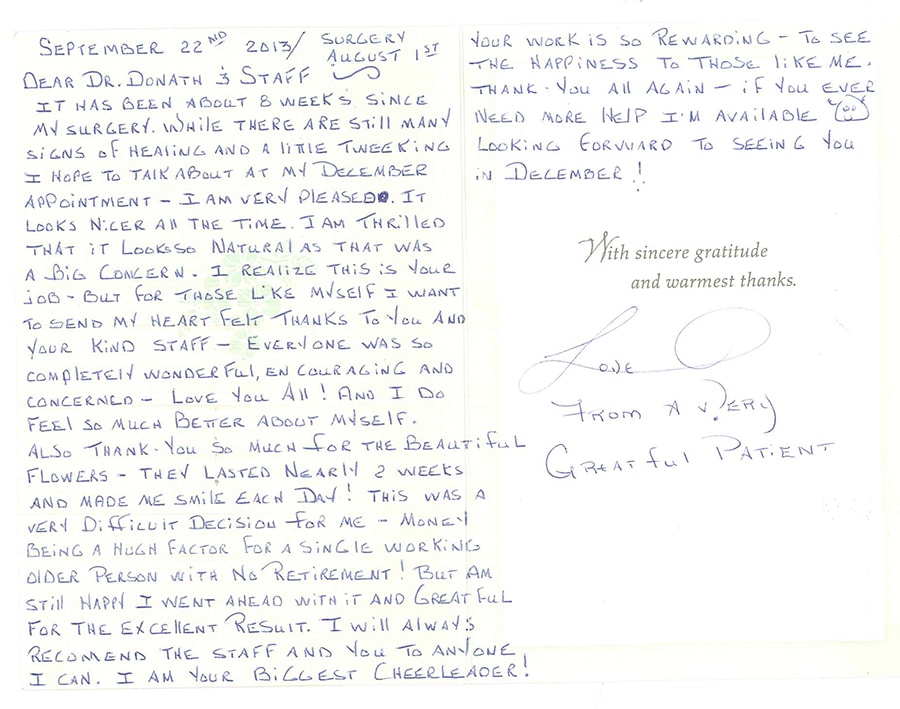 SEPTEMBER 22ND 2013/ SURGERY AUGUST 1ST
DEAR DR. DONATH & STAFF
IT HAS BEEN ABOUT 8 WEEKS SINCE
MY SURGERY. WHILE THERE ARE STILL MANY
SIGNS OF HEALING AND A LITTLE TWEEKING
I HOPE TO TALK ABOUT AT MY DECEMBER
APPOINTMENT – I AM VERY PLEASED. IT
LOOKS NICER ALL THE TIME. I AM THRILLED
THAT IT LOOKS SO NATURAL AS THAT WAS
A BIG CONCERN. I REALIZE THIS IS YOUR
JOB – BUT FOR THOSE LIKE MYSELF I WANT
TO SEND MY HEART FELT THANKS TO YOU AND
YOUR KIND STAFF – EVERYONE WAS SO
COMPLETELY WONDERFUL, ENCOURAGING AND
CONCERNED – LOVE YOU ALL! AND I DO
FEEL SO MUCH BETTER ABOUT MYSELF.
ALSO THANK-YOU SO MUCH FOR THE BEAUTIFUL
FLOWERS – THEY LASTED NEARLY 2 WEEKS
AND MADE ME SMILE EACH DAY! THIS WAS A
VERY DIFFICULT DECISION FOR ME – MONEY
BEING A HUGH FACTOR FOR A SINGLE WORKING
OLDER PERSON WITH NO RETIREMENT! BUT AM
STILL HAPPY I WENT AHEAD WITH IT AND GREATFUL
FOR THE EXCELLENT RESULT. I WILL ALWAYS
RECOMEND THE STAFF AND YOU TO ANYONE
I CAN. I AM YOUR BIGGEST CHEERLEADER!
YOUR WORK IS SO REWARDING – TO SEE
THE HAPPINESS TO THOSE LIKE ME.
THANK-YOU ALL AGAIN – IF YOU EVER
NEED MORE HELP I'M AVAILABLE
LOOKING FORWARD TO SEEING YOU
IN DECEMBER!
With sincere gratitude
and warmest thanks.
LOVE
FROM A VERY
GREATFUL PATIENT